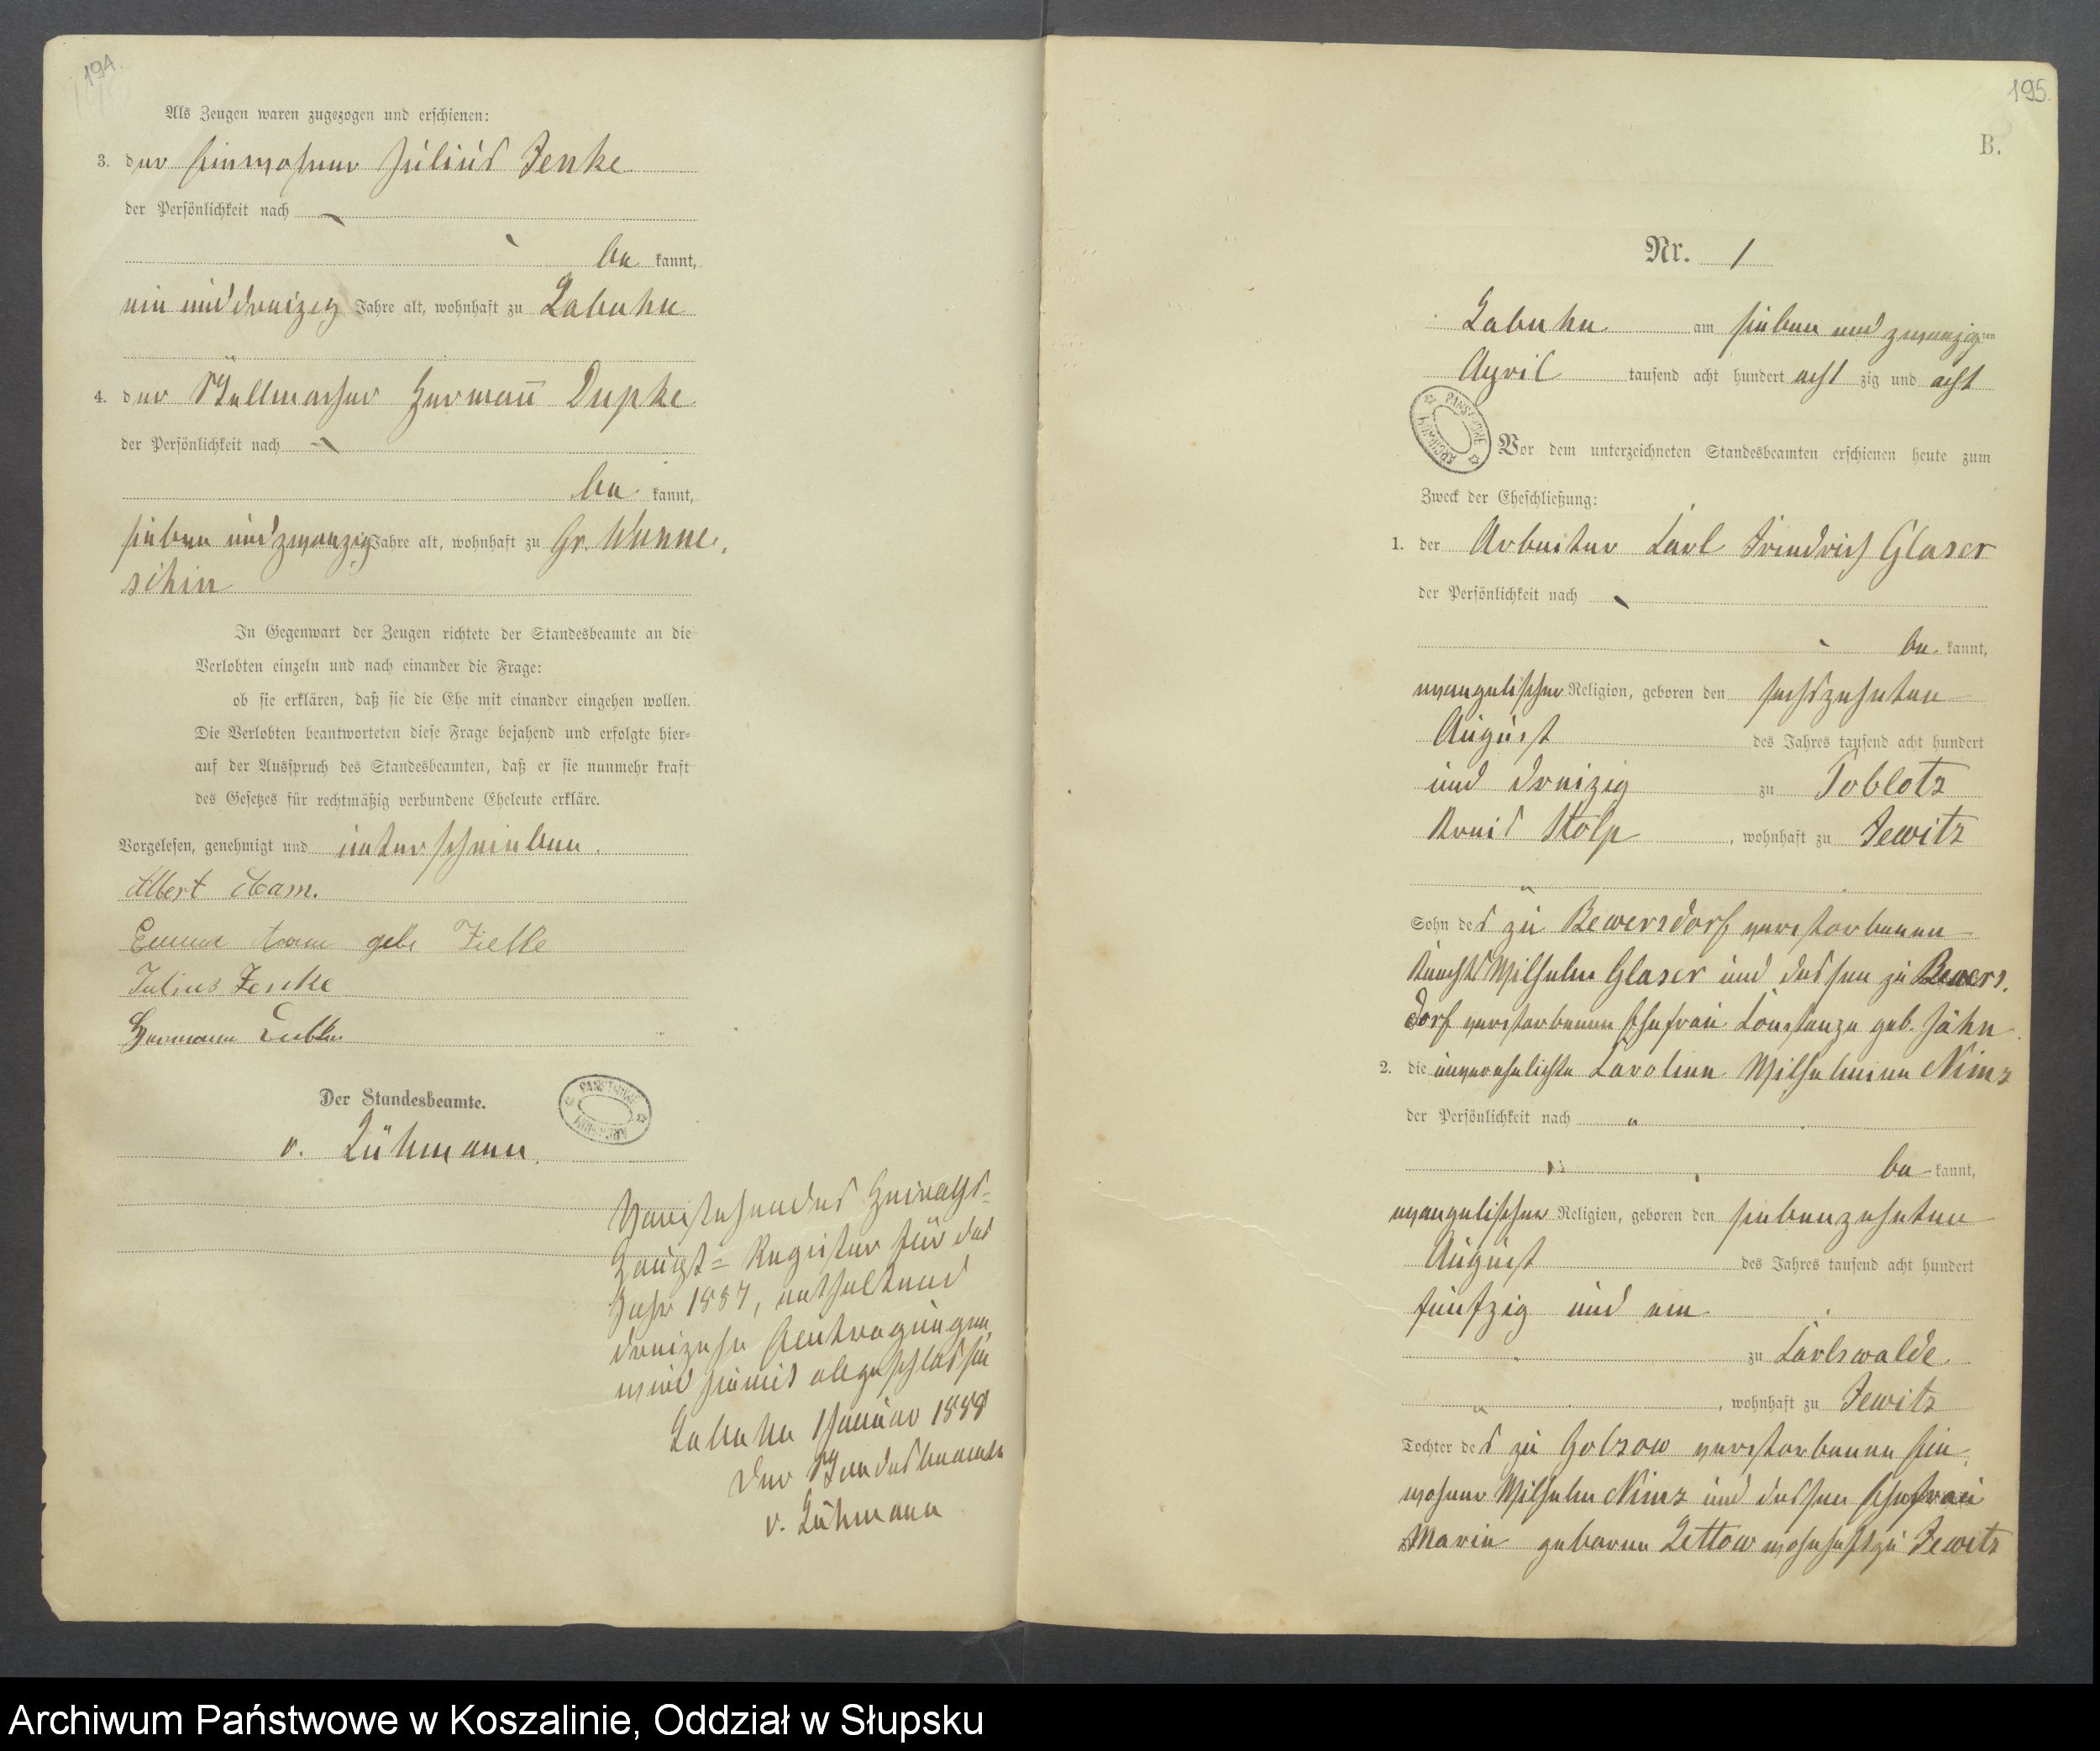 194.
Als Zeugen waren zugezogen und erschienen:
3. der Einwohner Julius Jenke
der Persönlichkeit nach
be kannt,
ein und dreizig Jahre alt, wohnhaft zu Labuhn
4. der Stellmacher Hermann Dupke
der Persönlichkeit nach
be kannt,
sieben und zwanzig Jahre alt, wohnhaft zu Gr. Wunne-
schin
In Gegenwart der Zeugen richtete der Standesbeamte an die
Verlobten einzeln und nach einander die Frage:
ob sie erklären, daß sie die Ehe mit einander eingehen wollen.
Die Verlobten beantworteten diese Frage bejahend und erfolgte hier-
auf der Ausspruch des Standesbeamten, daß er sie nunmehr kraft
des Gesetzes für rechtmäßig verbundene Eheleute erkläre.
Vorgelesen, genehmigt und unterschrieben.
Albert
Emma geb
Julius Jenke
Hermann
Der Standesbeamte.
v. Lühmann
Vorstehendes Heiraths-
Haupt-Register für das
Jahr 1887, enthaltend
dreizehn Eintragungen,
wird hiermit abgeschlossen
Labuhn 1 Januar 1888
Der Standesbeamte
v. Lühmann
195.
B.
Nr. 1
Labuhn am sieben und zwanzigsten
April tausend acht hundert acht zig und acht
Vor dem unterzeichneten Standesbeamten erschienen heute zum
Zweck der Eheschließung:
1. der Arbeiter Carl Friedrich Glaser
der Persönlichkeit nach
be kannt,
evangelischer Religion, geboren den sechszehnten
August des Jahres tausend acht hundert
und dreizig zu Poblotz
Kreis Stolp, wohnhaft zu Jewitz
Sohn des zu Bewersdorf verstorbenen
Knechts Wilhelm Glaser und dessen zu Bewers-
dorf verstorbenen Ehefrau Constanze geb. Jähn
2. die unverehelichte Caroline Wilhelmine Nimz
der Persönlichkeit nach "
be kannt,
evangelischer Religion, geboren den siebenzehnten
August des Jahres tausend acht hundert
fünfzig und ein
zu Carlswalde
, wohnhaft zu Jewitz
Tochter des zu Gohsow verstorbenen Ein-
wohner Wilhelm Nimz und dessen Ehefrau
Marie geborne Lettow wohnhaft zu Jewitz
Archiwum Państwowe w Koszalinie, Oddział w Słupsku